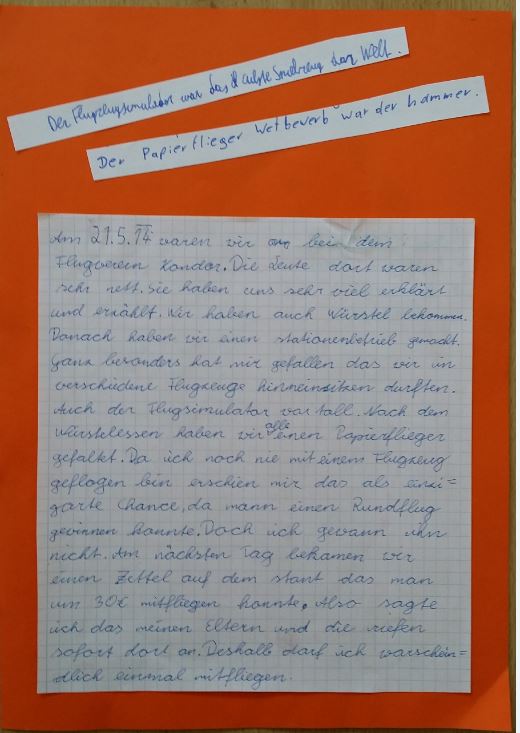 Der Flugzeugsimulator war das coolste Spielzeug der Welt.
Der Papierflieger Wettbewerb war der hammer.
Am 21.5.14 waren wir bei dem
Flugverein Kondor. Die Leute dort waren
sehr nett. sie haben uns sehr viel erklärt
und erzählt. Wir haben auch Würstel bekommen.
Danach haben wir einen stationenbetrieb gemacht.
Ganz besonders hat mir gefallen das wir in
verschiedene Flugzeuge hinneinsitzen durften.
Auch der Flugsimulator war toll. Nach dem
Würstelessen haben wir alle einen Papierflieger
gefaltet. Da ich noch nie mit einem Flugzeug
geflogen bin erschien mir das als einzi=
garte Chance, da mann einen Rundflug
gewinnen konnte. Doch ich gewann ihn
nicht. Am nächsten Tag bekamen wir
einen Zettel auf dem stant das man
um 30€ mitfliegen konnte. Also sagte
ich das meinen Eltern und die riefen
sofort dort an. Deshalb darf ich warschein=
dlich einmal mitfliegen.